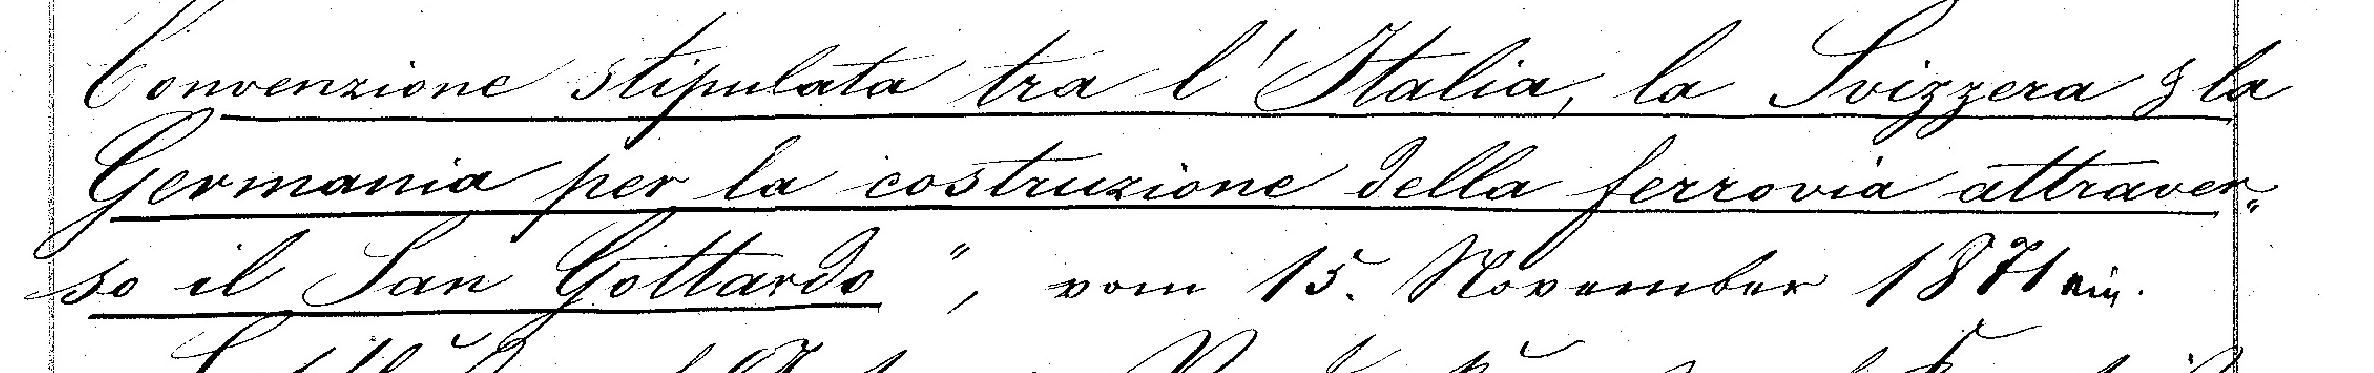 Convenzione stipulata tra l'Italia, la Svizzera & la
Germania per la costruzione della ferrovia attraver„
so il San Gottardo", vom 15. November 1871 ein.